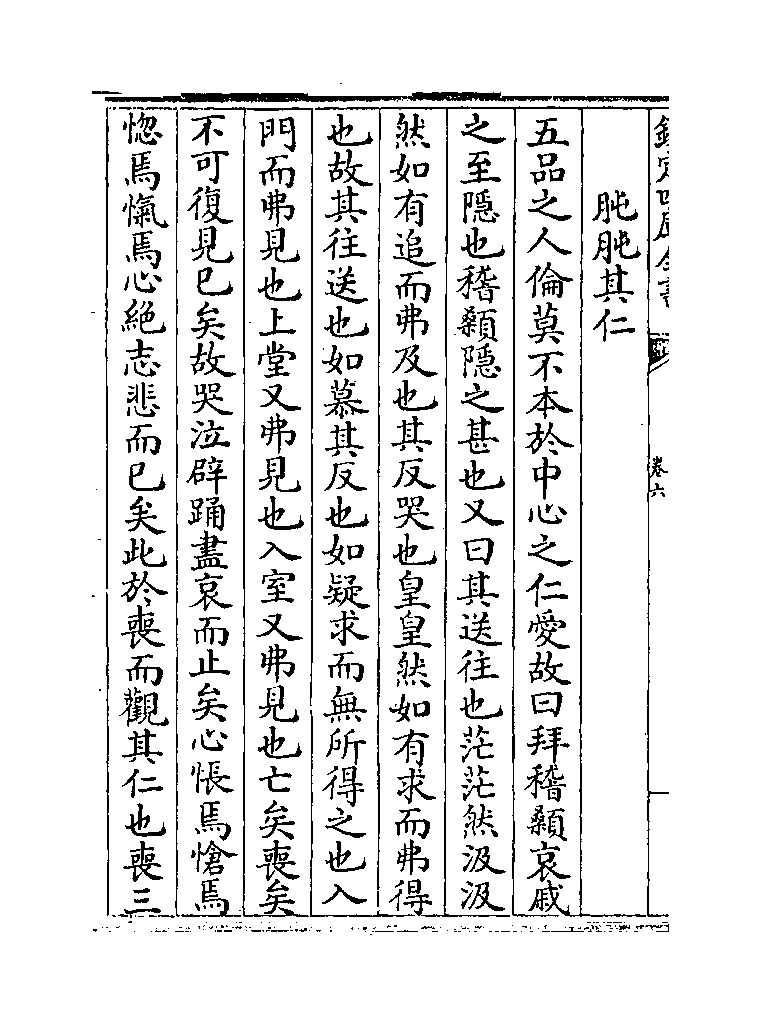 欽定四庫全書
卷六
肫肫其仁
五品之人倫莫不本於中心之仁愛故曰拜稽顙哀戚
之至隱也稽顙隱之甚也又曰其送往也茫茫然汲汲
然如有追而弗及也其反哭也皇皇然如有求而弗得
也故其往送也如慕其反也如疑求而無所得之也入
門而弗見也上堂又弗見也入室又弗見也亡矣喪矣
不可復見已矣故哭泣辟踊盡哀而止矣心悵焉愴焉
惚焉愾焉心絶志悲而已矣此於喪而觀其仁也喪三